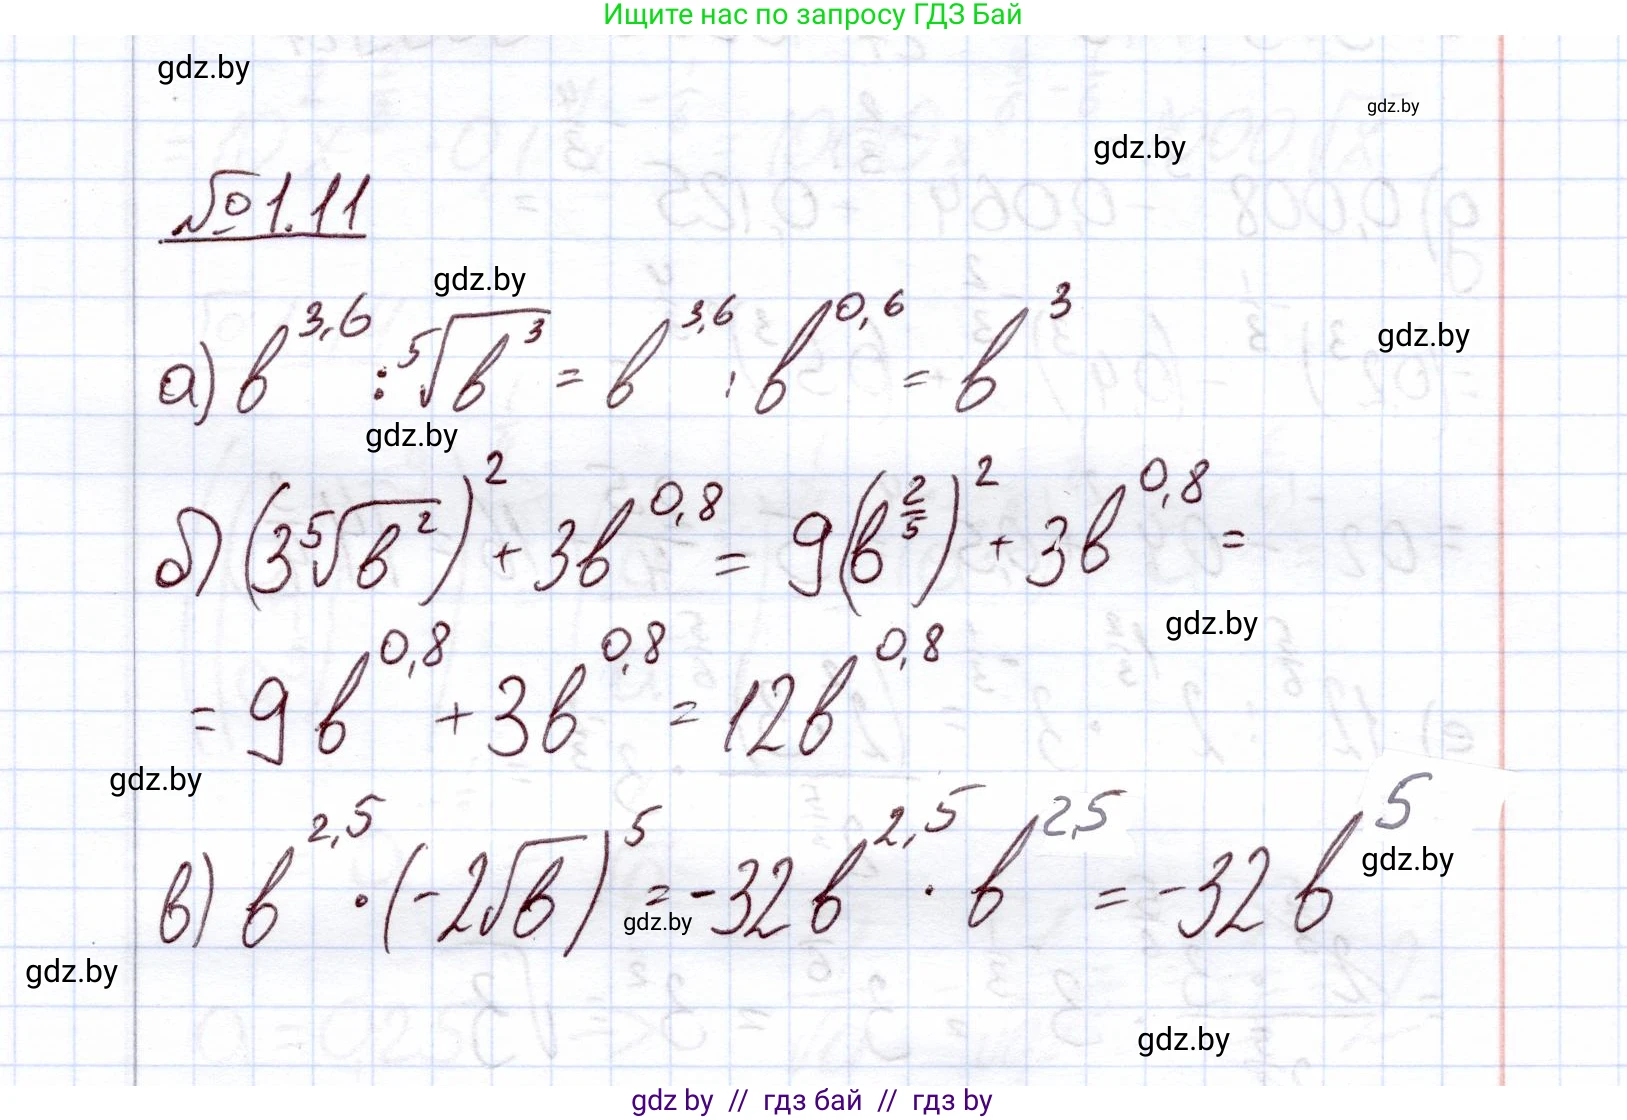 Ищите нас по запросу ГДЗ Бай
gdz.by
gdz.by
gdz.by
№ 1.11
gdz.by
а) b^3,6 : ⁵√b^3 = b^3,6 : b^0,6 = b^3
gdz.by
gdz.by
б) (3 ⁵√b^2)^2 + 3b^0,8 = 9(b^2/5)^2 + 3b^0,8 =
gdz.by
= 9b^0,8 + 3b^0,8 = 12b^0,8
gdz.by
в) b^2,5 · (-2√b)^5 = -32b^2,5 · b^2,5 = -32b^5
gdz.by
gdz.by
gdz.by
gdz.by
gdz by // гдз бай // гдз by